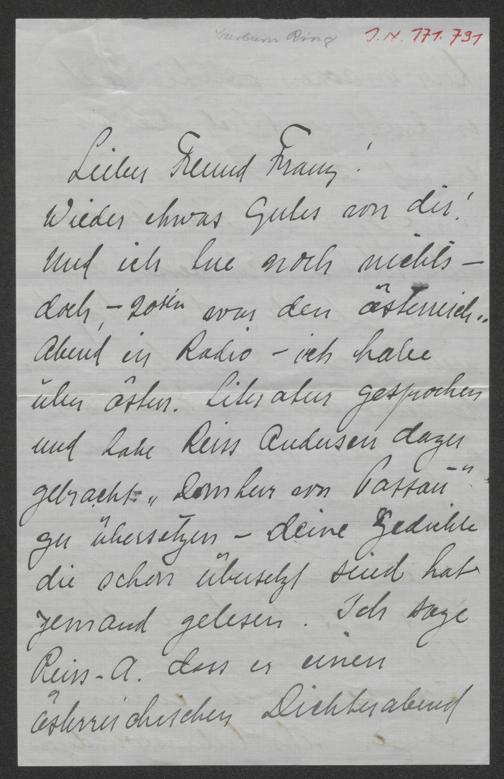 Barbara Ring J.N. 171.791
Lieber Freund Franz!
Wieder etwas Gutes von dir!
Und ich tue noch nichts –
doch, – 20sten war den österreich.
Abend in Radio – ich habe
über österr. Literatur gesprochen
und habe Reiss Andersen dazu
gebracht „Domherr von Passau"
zu übersetzen – deine Gedichte
die schon übersetzt sind hat
jemand gelesen. Ich sage
Reiss-A. dass er einen
österreichischen Dichterabend